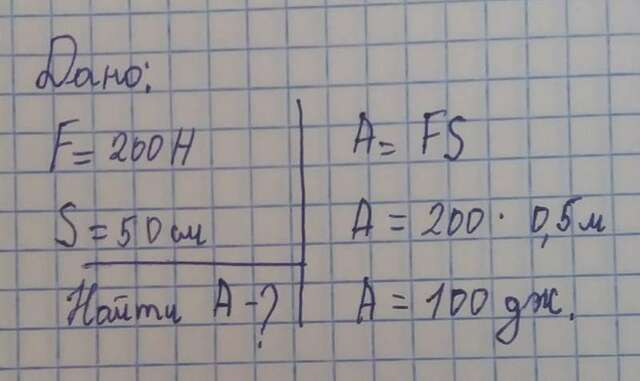 Дано:
F = 200 Н
S = 50 см
Найти А-?
A = FS
A = 200 · 0,5 м
A = 100 дж.